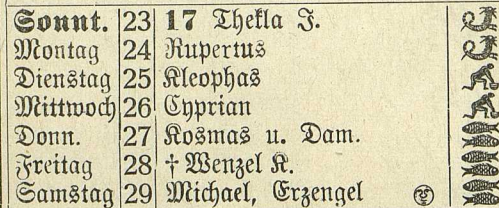 Sonnt. 23 17 Thekla J.
Montag 24 Rupertus
Dienstag 25 Kleophas
Mittwoch 26 Cyprian
Donn. 27 Kosmas u. Dam.
Freitag 28 † Wenzel K.
Samstag 29 Michael, Erzengel